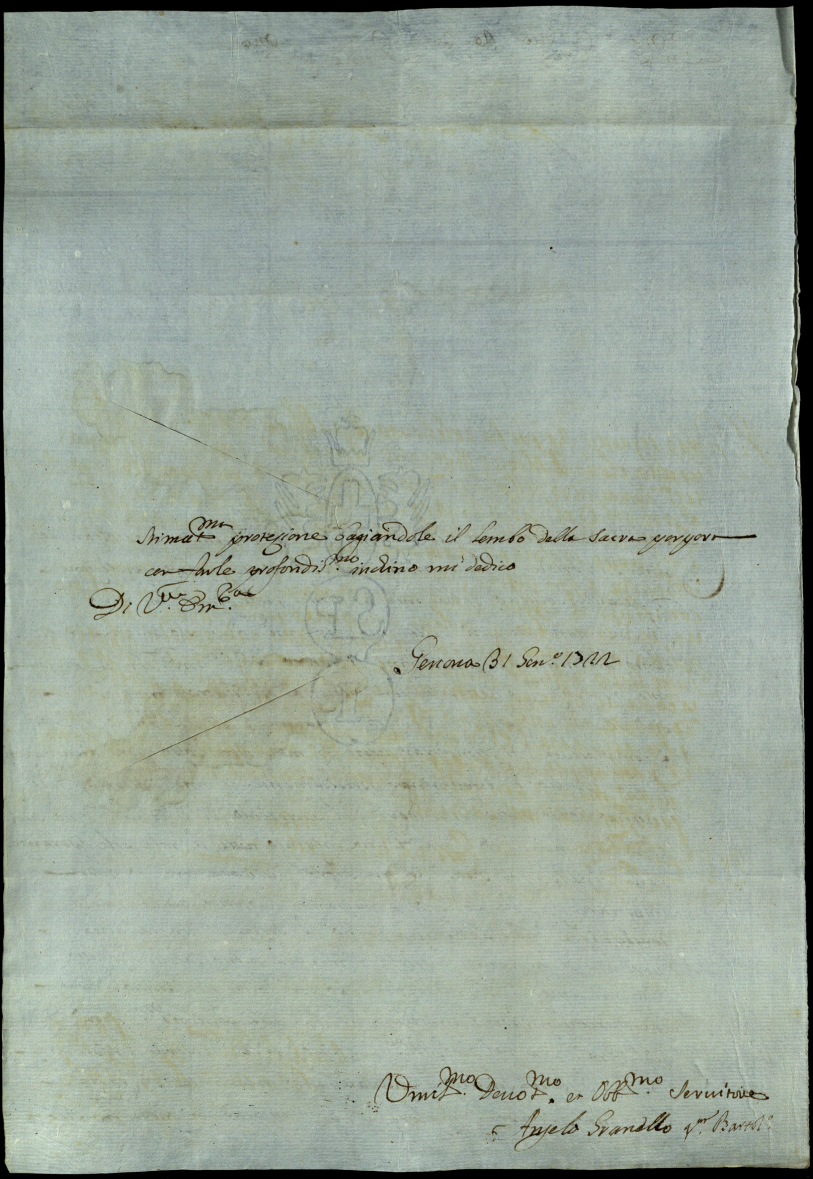 stimat.ma protezione bagiandole il Lembo della Sacra porpora
con farle profondis.mo inclino mi dedico
Di V.ra Em.za
Genova 31 Gen.o 1722
Umil.mo Devo.mo et Obb.mo Servitore
Angelo Granello q.m Bartol.o